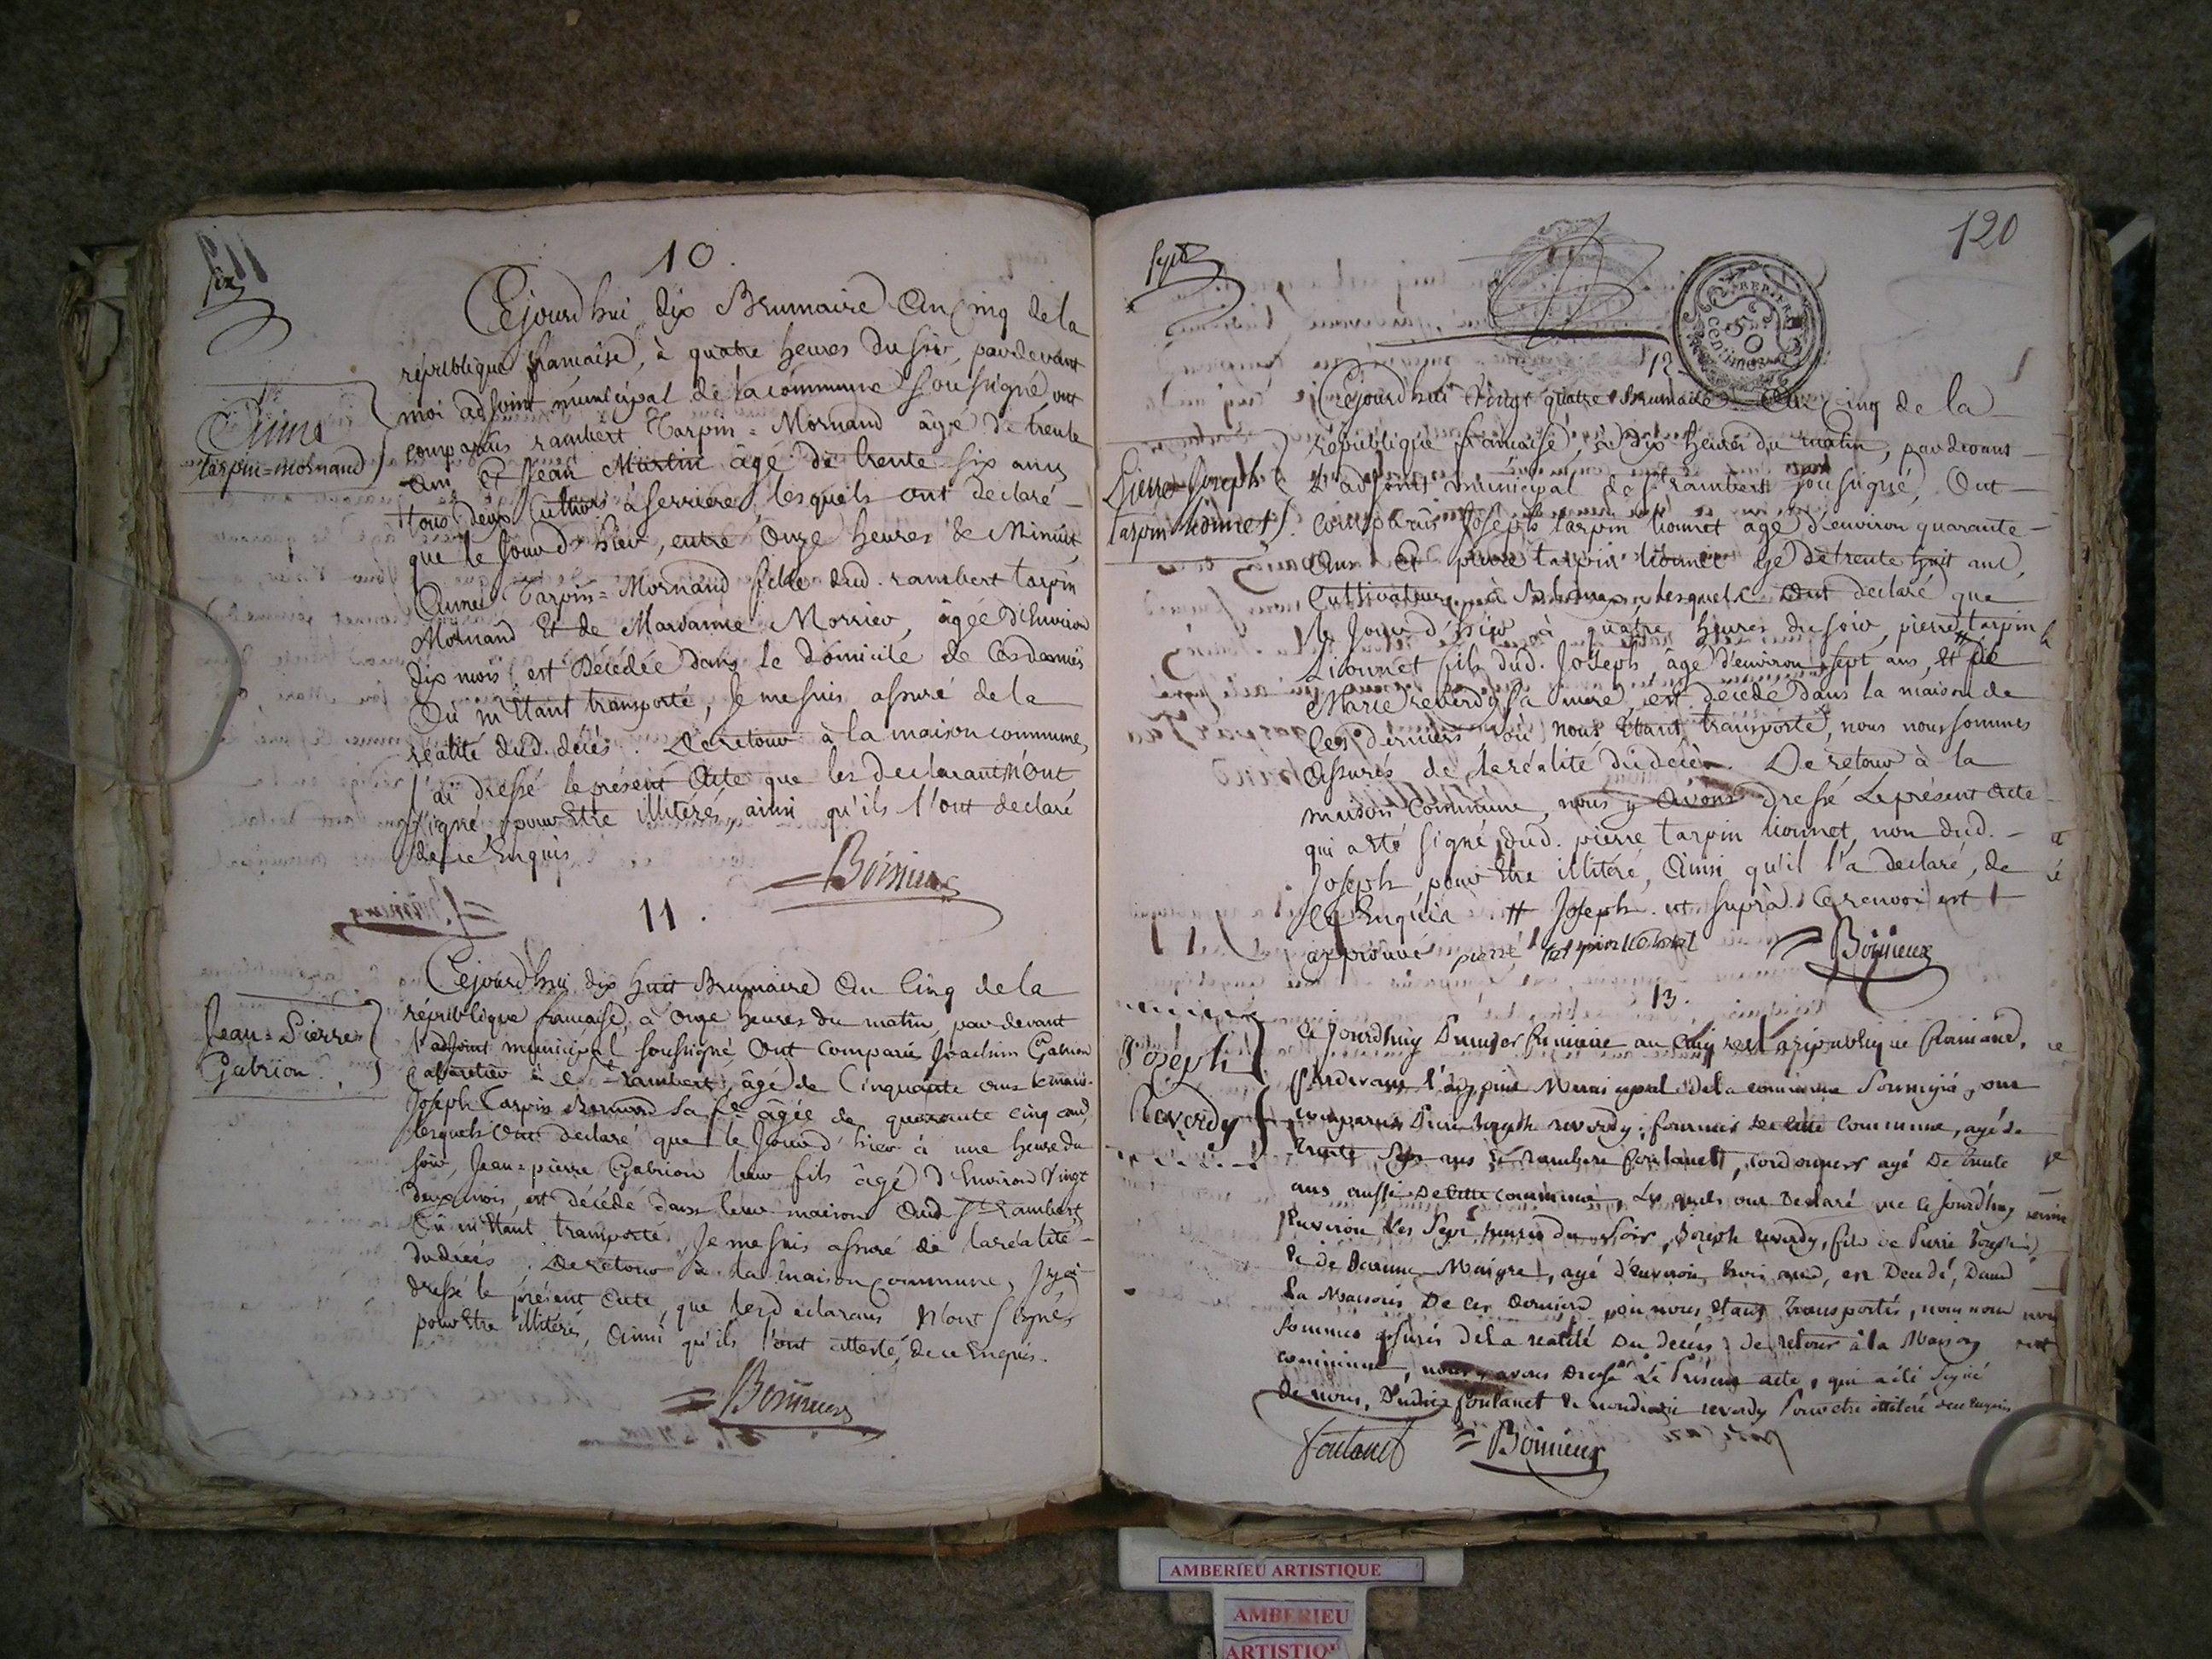 six
10.
Cejourd'hui dix Brumaire an Cinq de la
république française, à quatre heures du soir, pardevant
moi adjoint municipal de la commune soussigné ont
comparus rambert Tarpin=Mornand âgé de trente
ans Et Jean Martin âgé de trente six ans
tous deux Cultivrs à Serriere, lesquels ont declaré
que le Jour d'hier, entre Onze heures & Minuit,
Anne Tarpin=Mornand fille dud. rambert tarpin
Mornand Et de Mardanne Morrier, âgée d'Environ
dix mois est Décédée dans le domicile de Ces derniers
Où m'Etant transporté, Je me suis assuré de la
réalité dud. décès. De retour à la maison commune,
J'ai dressé le présent Acte que les declarants n'Ont
signé, pour Etre illitérés, ainsi qu'ils l'ont declaré
de ce Enquis
Anne
tarpin=mornand
=Boinieux
11.
Cejourd'hui dix huit Brumaire An Cinq de la
république française, à Onze heures du matin, par devant
l'adjoint municipal soussigné, Ont comparu Joachim Gabrion
Cabaretier à St rambert, âgé de Cinquante ans
Joseph Tarpin Mornand sa fe âgée de quarante cinq ans,
lesquels Ont declaré que le Jour d'hier à une heure du
soir, Jean=pierre Gabrion leur fils âgé d'Environ Vingt
deux mois, est décédé dans leur maison Aud. St Rambert
Où m'Etant transporté, Je me suis assuré de la réalité
du décès. De retour à la maison commune, J'y ai
dressé le présent Acte, que les declarans n'Ont signé,
pour Etre illitérés, Ainsi qu'ils l'ont attesté, de ce Enquis.
Jean=Pierre
Gabrion.
=Boinieux
sept
120
50
centimes
12.
Cejourd'hui Vingt quatre Brumaire An Cinq de la
république française, à dix heures du matin, pardevant
L'adjoint municipal de St rambert soussigné, Ont
Comparus Joseph tarpin lionnet âgé d'environ quarante
Ans Et pierre tarpin lionnet âgé de trente huit ans,
Cultivateurs à lesquels Ont declaré que
le Jour d'hier à quatre heures du soir, pierre # tarpin
Lionnet fils dud. Joseph, âgé d'environ sept ans, Et de
Marie reverdy sa mere, est décédé dans la maison de
Ces derniers où nous Etant transporté, nous nous sommes
Assurés de la réalité du décès. De retour à la
maison Commune, nous y Avons dressé Le présent Acte
qui a été signé dud. pierre tarpin lionnet, non dud.
Joseph, pour Etre illitéré, Ainsi qu'il l'a declaré, de
Ce Enquis # Joseph. ut suprà. Ce renvoi est
approuvé pierre tarpin lionnet =Boinieux
Pierre-Joseph
tarpin lionnet.
13.
Ce Jourdhuy Premier frimaire an Cinq de la republique francaise,
Pardevant l'adjoint Municipal de la commune Soussigné, ont
comparus Pierre Joseph reverdy, fournier de cette Commune, agé de
trente sept ans Et rambert fontanet, cordonnier agé De trente
ans aussi De Cette commune, Les quels ont Declaré que Ce Jourdhuy
Environ Les Sept heures du Soir, Joseph reverdy, fils de Pierre Joseph
& de Jeanne Maigre, agé d'Environ trois ans, est Decedé, Dans
La Maison De Ces Derniers, où nous Etant Transportés, nous nous
sommes assurés de la realité Du decès; De retour à la Maison
commune, nous y avons Dressé Le Présent acte, qui a été signé
De nous, Dudit fontanet & non dudit reverdy Pour etre illitéré de ce Enquis
Joseph
Reverdy
fontanet =Boinieux
AMBERIEU ARTISTIQUE
AMBERIEU
ARTISTIQ